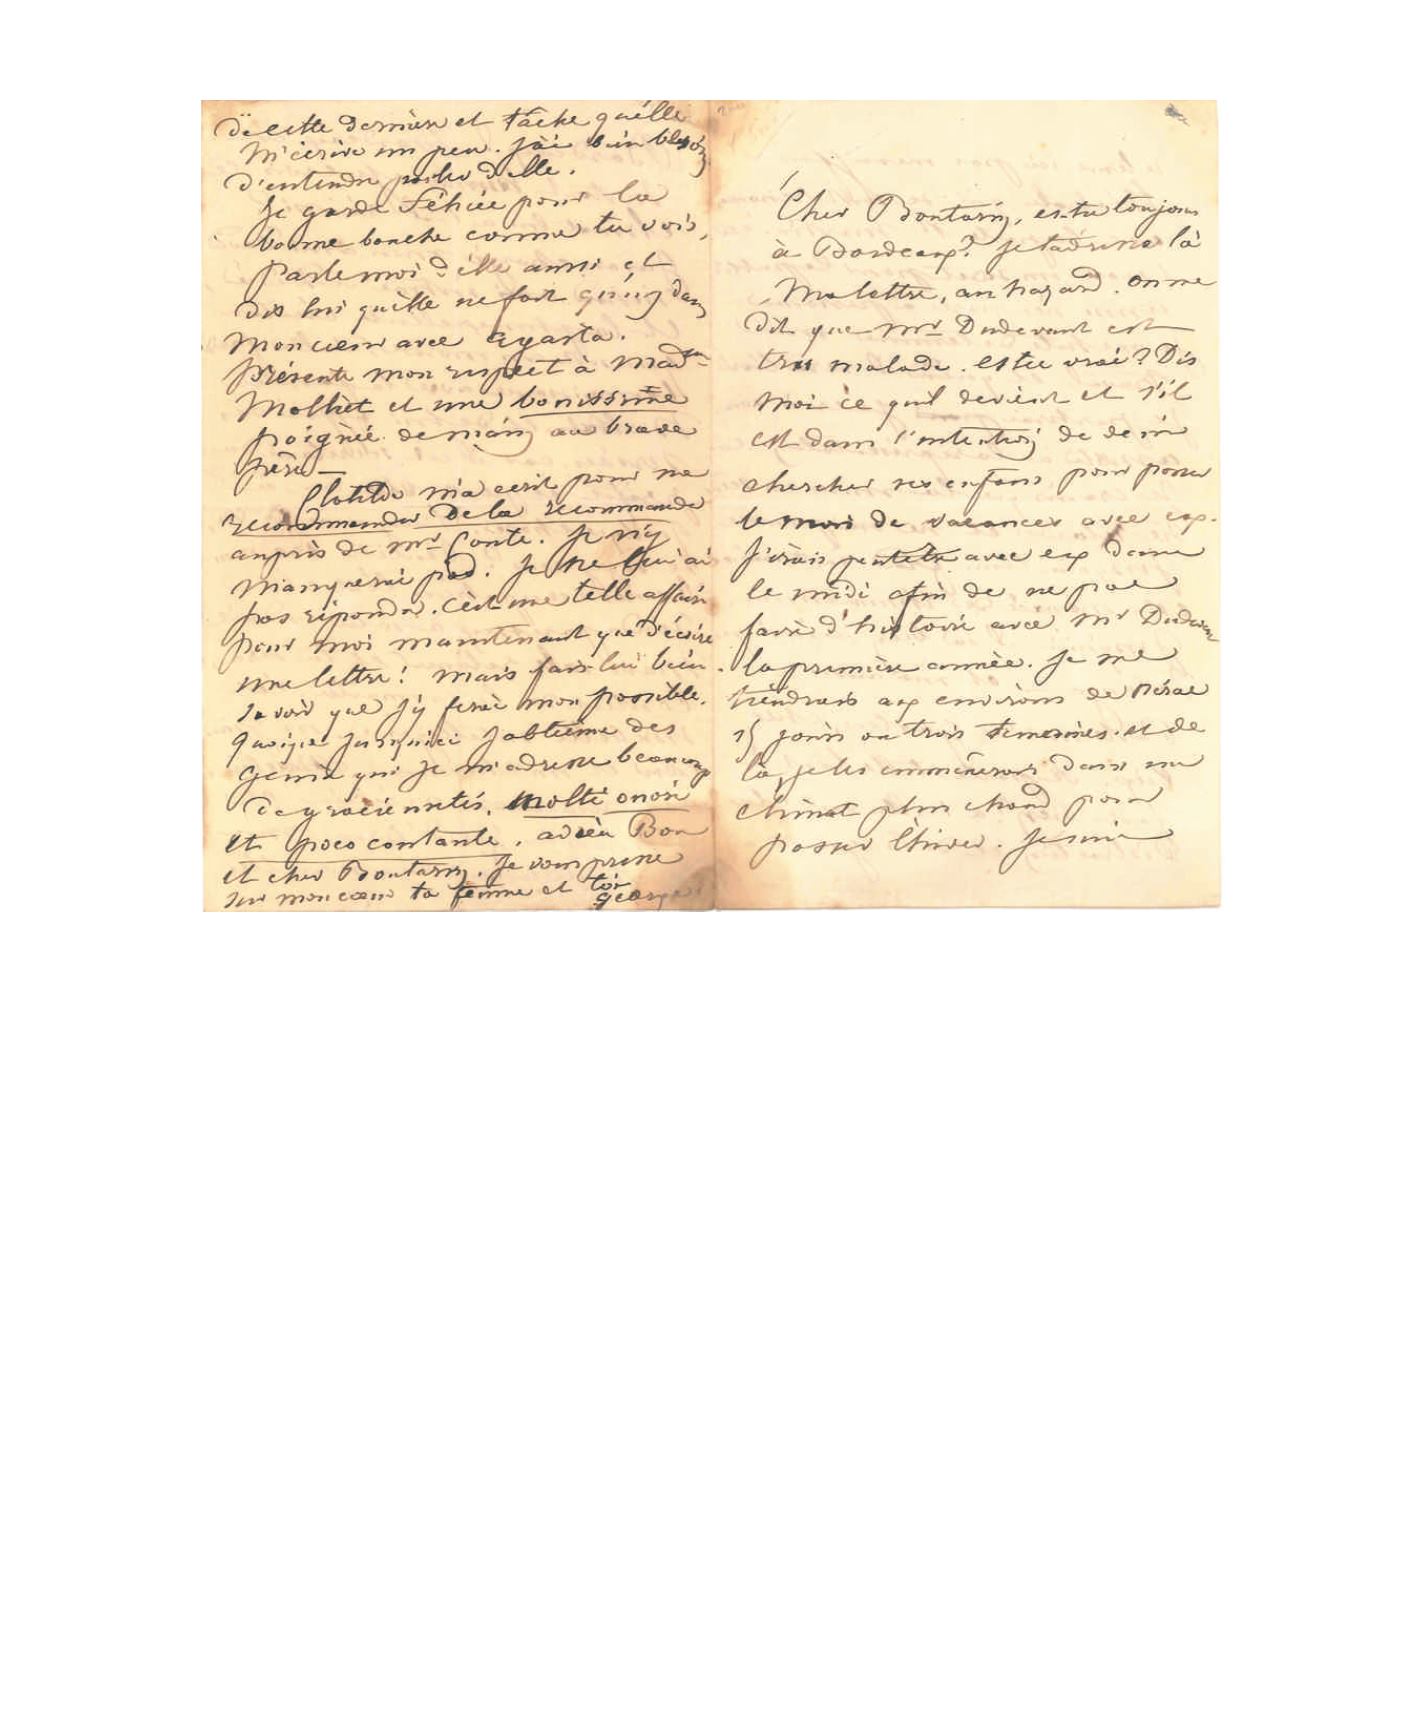 Cher Boutarin, es tu toujours
à Bordeaux? Je t'adresse là
Ma lettre, au hazard. On me
dit que Mr Dudevant est
très malade. est ce vrai? Dis
moi ce qu'il devient et s'il
est dans l'intention de venir
chercher ses enfans pour passer
le mois de vacances avec eux.
J'irais peutetre avec eux dans
le midi afin de ne pas
faire d'histoire avec Mr Dudevant
la première année. Je me
tiendrais aux environs de Nérac
15 jours ou trois semaines. et de
là, je les emmènerais dans un
climat plus chaud pour
passer l'hiver. Je suis
de cette dernière et tâche qu'elle
m'écrive un peu. J'ai bien besoin
d'entendre parler d'elle.
Je garde Félicie pour la
bonne bouche comme tu vois,
Parle moi d'elle aussi et
dis lui qu'elle ne fait qu'un dans
mon cœur avec
Présente mon respect à Madme
Molliet et une bonissime
poignée de main au brave
père —
Clotilde m'a écrit pour me
recommander de la recommander
auprès de Mr Conte. Je n'y
manquerai pas. Je ne lui ai
pas répondu. C'est une telle affaire
pour moi maintenant que d'écrire
une lettre! mais fais lui bien
savoir que j'y ferai mon possible.
Quoique jusqu'ici j'obtienne des
gens à qui je m'adresse beaucoup
de gracieusetés, molti onori
et poco contante. adieu Bon
et cher Boutarin. Je vous presse
sur mon cœur ta femme et toi
George